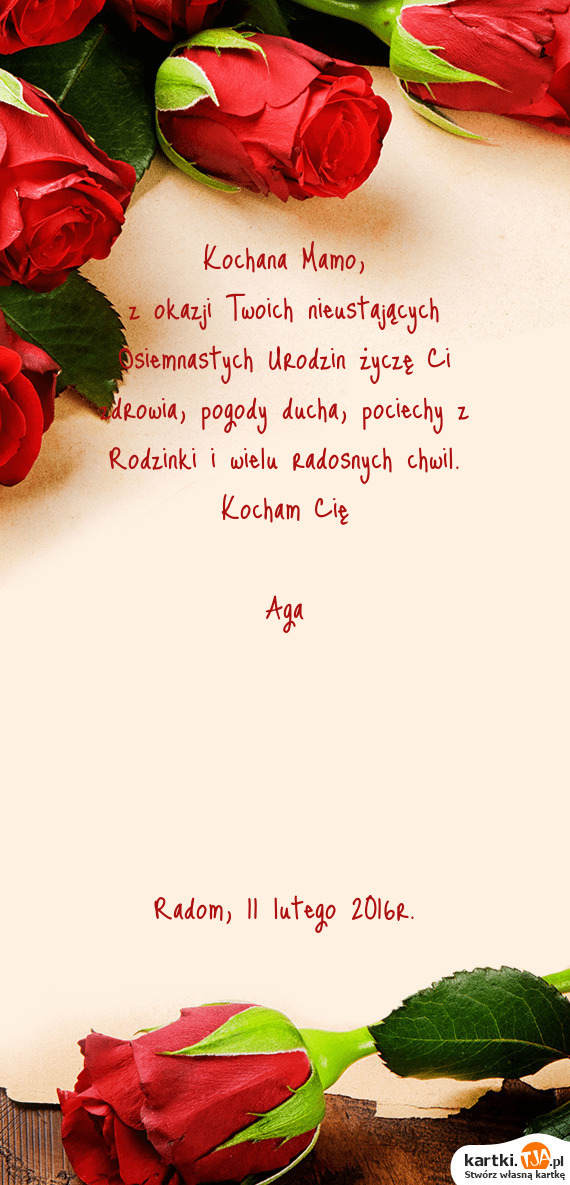 Kochana Mamo,
z okazji Twoich nieustających
Osiemnastych Urodzin życzę Ci
zdrowia, pogody ducha, pociechy z
Rodzinki i wielu radosnych chwil.
Kocham Cię
Aga
Radom, 11 lutego 2016r.
kartki.TJA.pl
Stwórz własną kartkę